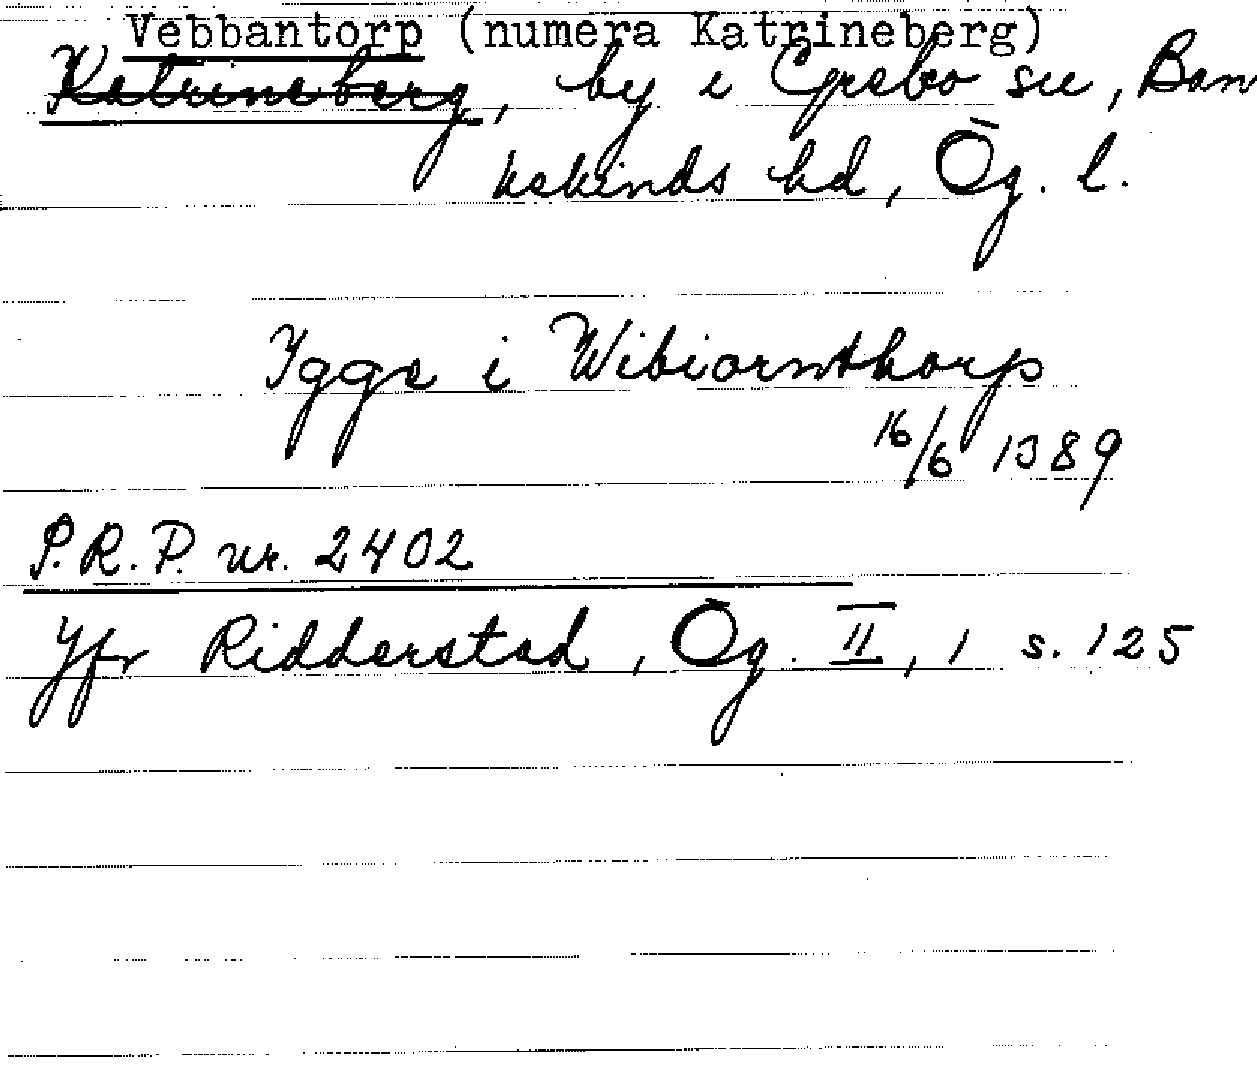 Vebbantorp (numera Katrineberg)
Katrineberg, by i Grebo sn, Ban
kekinds hd, Ög. l.
Ygge i Wibiornthorp
16/6 1389
P.R.P. nr. 2402
Jfr Ridderstad, Ög. II, 1 s. 125